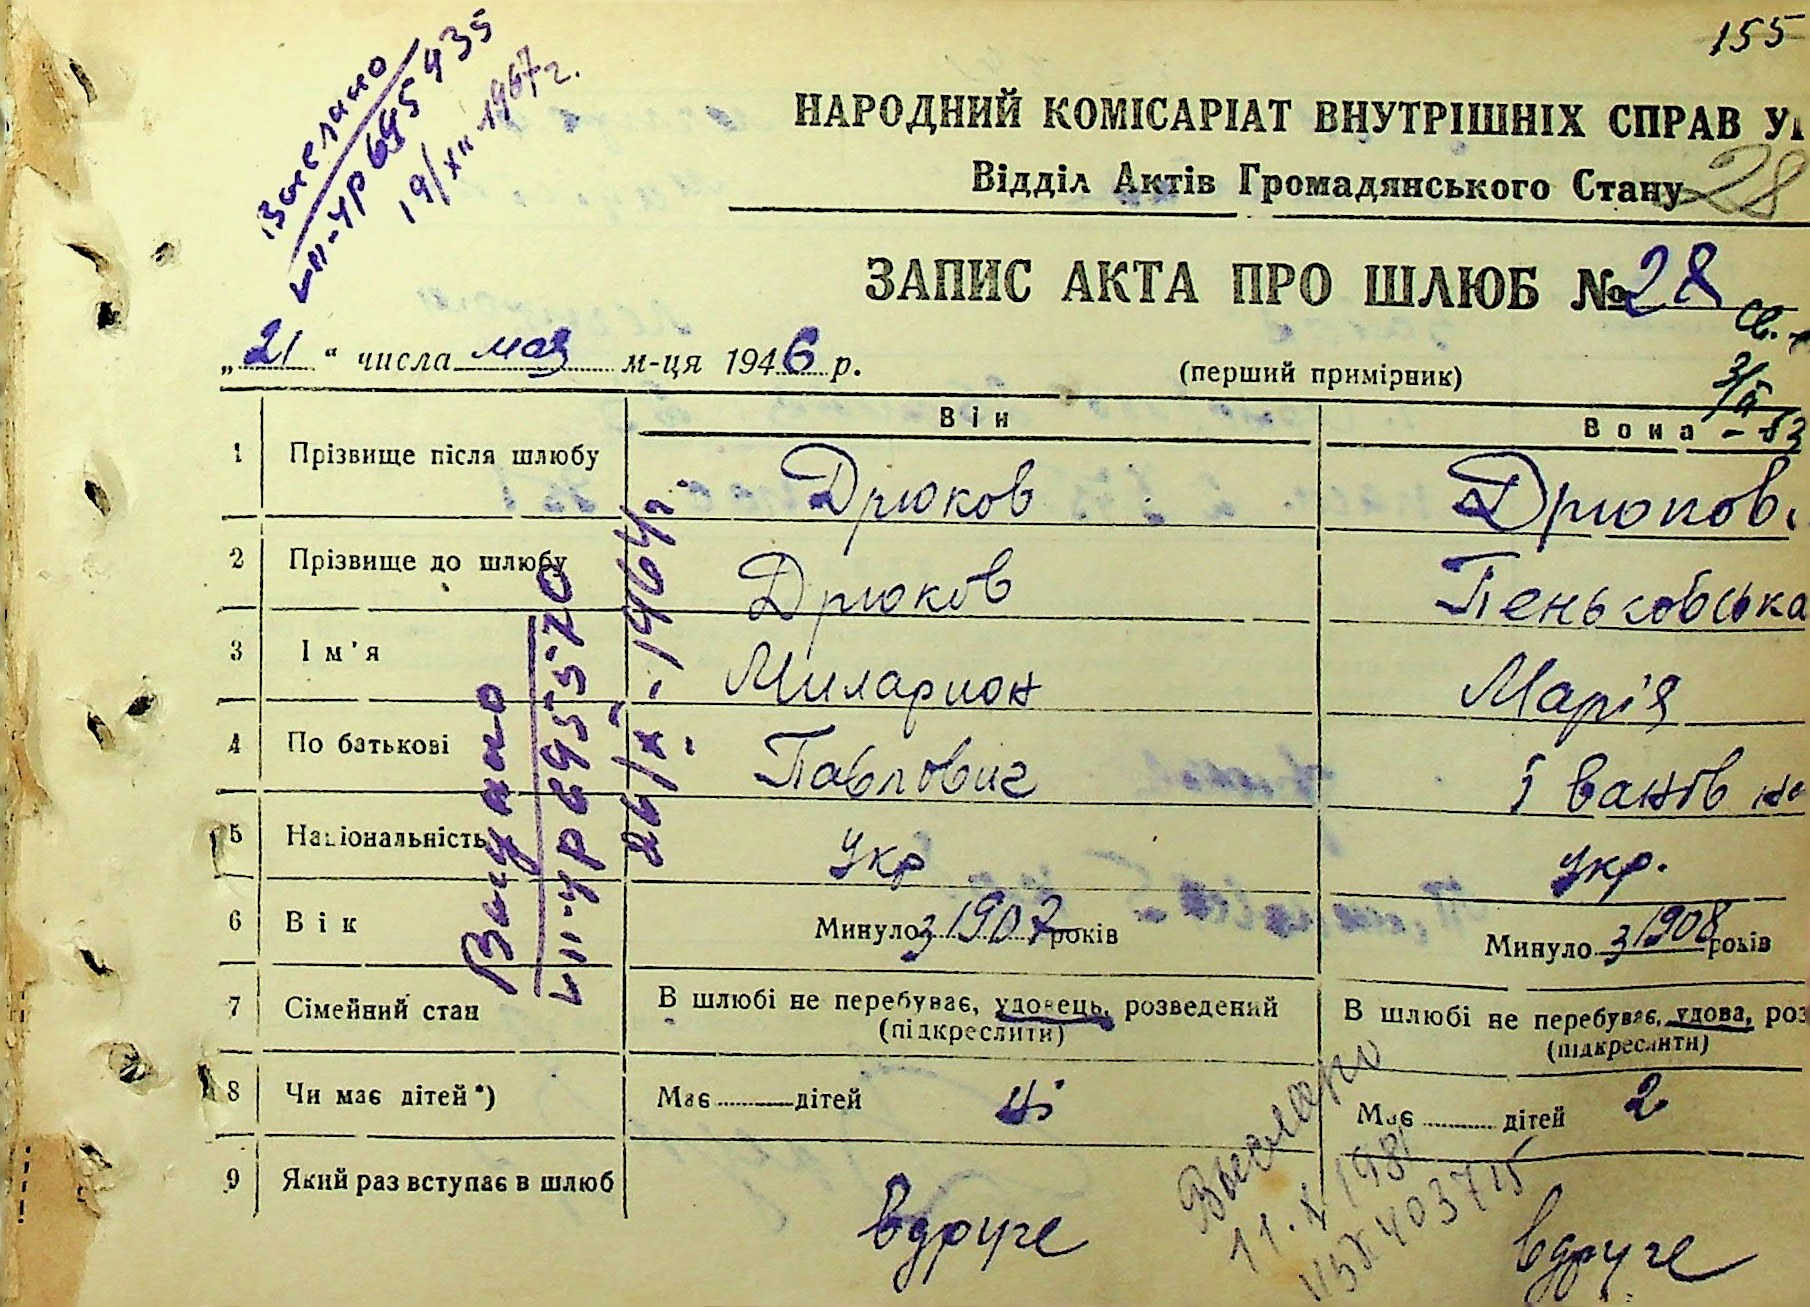 155
Выслано
VII-УР 695435
19/XII-1967г.
НАРОДНИЙ КОМІСАРІАТ ВНУТРІШНІХ СПРАВ
Відділ Актів Громадянського Стану
28
ЗАПИС АКТА ПРО ШЛЮБ № 28
„21“ числа мая м-ця 1946 р. (перший примірник)
Він Вона
1 Прізвище після шлюбу Дрюков Дрюков
2 Прізвище до шлюбу Дрюков Пеньковська
3 Ім'я Миларион Марія
4 По батькові Павлович Іванівна
5 Національність Укр Укр.
6 Вік Минуло з 1907 років Минуло з 1908 років
7 Сімейний стан В шлюбі не перебуває, удовець, розведений В шлюбі не перебуває, удова, роз
(підкреслити) (підкреслити)
8 Чи має дітей*) Має дітей Має дітей 2
9 Який раз вступає в шлюб вдруге вдруге
Видано
VII-УР 695570
26/X-1964г.
Выслано
11.X 1981
403715